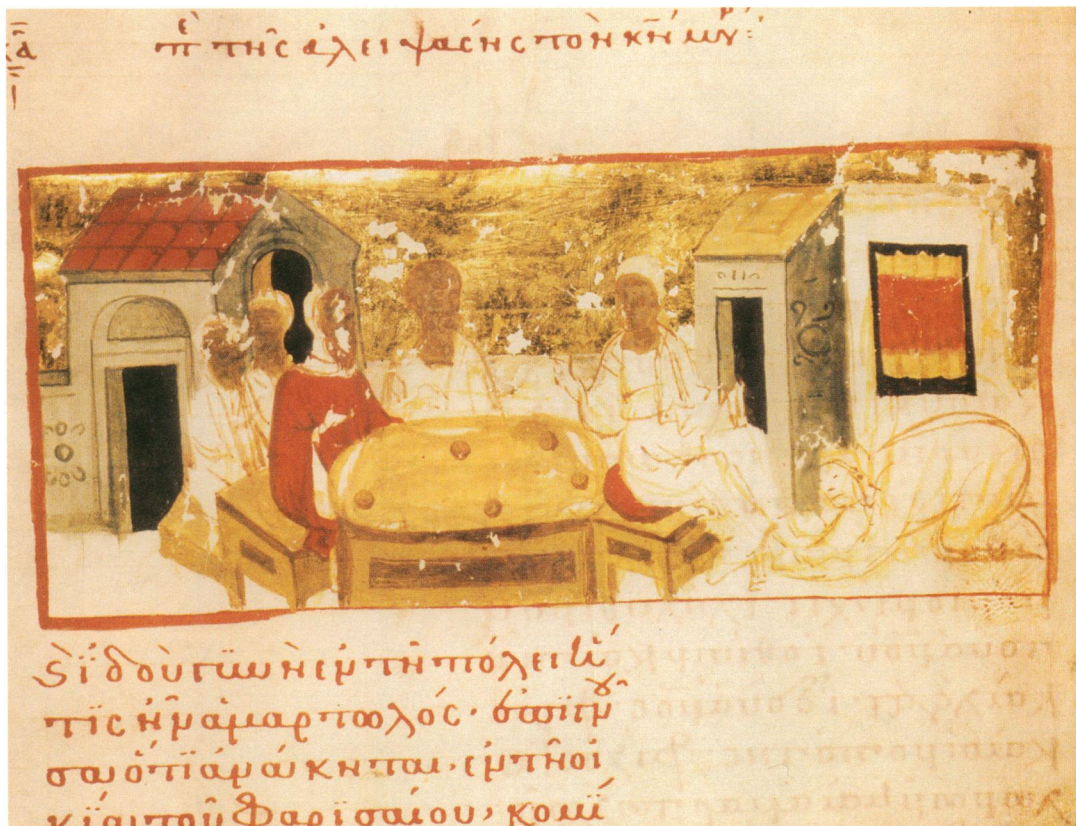 κα
πε τῆς ἀλειψάσης τὸν κν μυρ:
ϗ ἰδοὺ γυνὴ ἐν τῆ πόλει ἥ
τις ἦν ἁμαρτωλός· ϗ ἐπιγνοῦ
σα ὅτι ἀνάκηται, ἐν τῆ οἰ
κία τοῦ Φαρισαίου, κομί